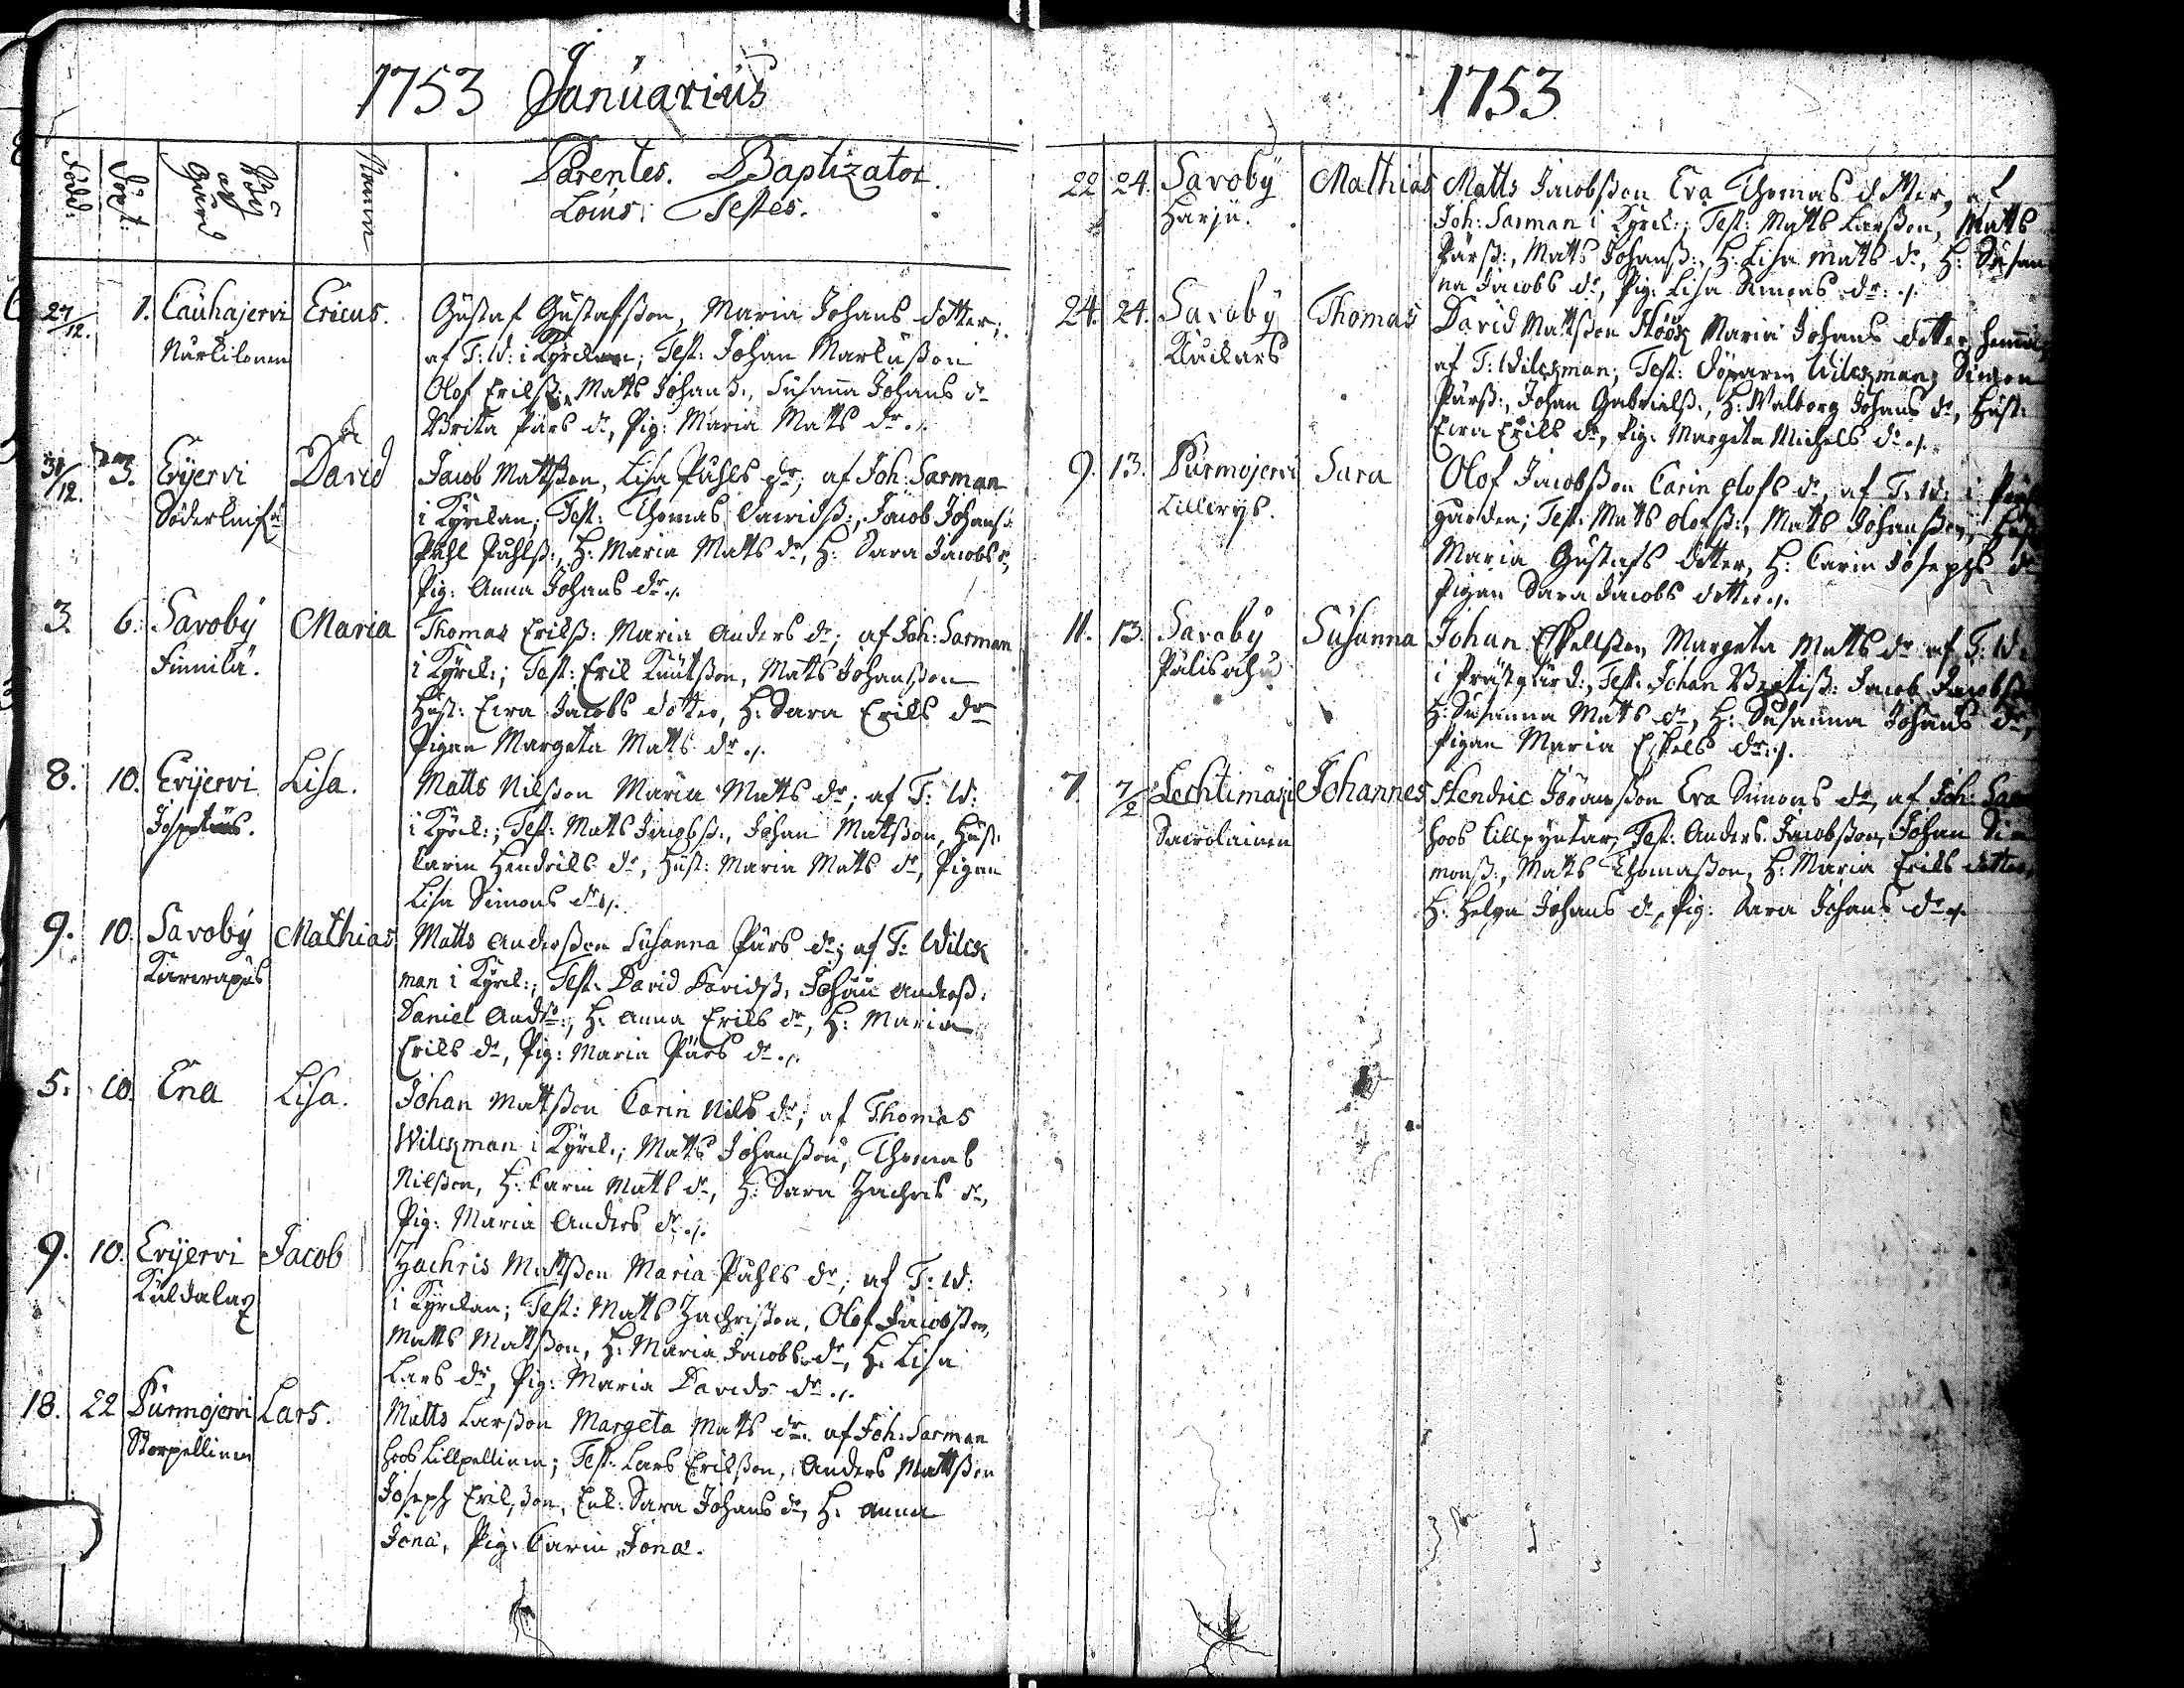 1753 Januarius
Född. Döpt. By och Gård Nomen Parentes. Baptizator.
Locus. Testes.
27/12. 1. Cauhajervi Ericus. Gustaf Gustafsson, Maria Johans dotter;
af T: W: i Kyrckan; Test: Johan Markusson
Olof Erikss: Matts Johanss:, Susanna Johans dr
Brita Pärs dr, Pig: Maria Matts dr ./.
31/12. 3. Evijervi David Jacob Mattsson, Lisa Påhls dr; af Joh: Sarman
i Kyrckan; Test: Thomas Davidss:, Jacob Johanss:
Påhl Påhlss:, H: Maria Matts dr, H: Sara Jacobs dr,
Pig: Anna Johans dr ./.
3. 6. Savoby Maria Thomas Erikss: Maria Anders dr; af Joh: Sarman
Finnilä. i Kyrck:; Test: Erik Knutsson, Matts Johansson
Hust: Eva Jacobs dotter, H: Sara Eriks dr
Pigan Margeta Matts dr ./.
8. 10. Evijervi Lisa. Matts Nilsson Maria Matts dr; af T: W:
i Kyrck:; Test: Matts Jacobss:, Johan Mattsson, Hust:
Carin Hendriks dr, Hust: Maria Matts dr, Pigan
Lisa Simons dr ./.
9. 10. Savoby Mathias Matts Andersson Susanna Pärs dr; af T: Wilck
man i Kyrck:; Test: David Davidss: Johan Anderss:
Daniel Anderss:, H: Anna Eriks dr, H: Maria
Eriks dr, Pig: Maria Pärs dr ./.
5. 10. Ena Lisa. Johan Mattsson Carin Nils dr; af Thomas
Wilckman i Kyrck:; Matts Johansson, Thomas
Nilsson, H: Carin Matts dr, H: Sara Zachris dr,
Pig: Maria Anders dr ./.
9. 10. Evijervi Jacob Zachris Mattsson Maria Påhls dr; af T: W:
Kuldalax i Kyrckan; Test: Matts Zachrisson, Olof Jacobsson,
Matts Mattsson, H: Maria Jacobs dr, H: Lisa
Lars dr, Pig: Maria Davids dr ./.
18. 22 Purmojervi Lars. Matts Larsson Margeta Matts dr. af Joh: Sarman
Storpellinen hoos Lillpellinen; Test: Lars Eriksson, Anders Mattsson
Joseph Eriksson, Enk: Sara Johans dr, H: Anna
Jona, Pig: Carin Jonæ.
1753
22 24. Savoby Mathias Matts Jacobsson Eva Thomas dotter, af
Harju. Joh: Sarman i Kyrck:; Test: Matts Larsson, Matts
Pärss:, Matts Johanss:, H: Lisa Matts dr, H: Susan
na Jacobs dr, Pig: Lisa Simons dr ./.
24. 24. Savoby Thomas David Mattsson Höök Maria Johans dotter
af T: Wilckman; Test: Wilckman, Simon
Pärss:, Johan Gabrielss:, H: Walborg Johans dr, Hust:
Eva Eriks dr, Pig: Margeta Michels dr ./.
9. 13. Purmojervi Sara Olof Jacobsson Carin Olofs dr, af T: W: i Präst
gården; Test: Matts Olofss:, Matts Johansson,
Maria Gustafs dotter, H: Carin Josephs dr
Pigan Sara Jacobs dotter ./.
11. 13. Savoby Susanna Johan Eskelsson Margeta Matts dr af T: W:
i Prästgård:, Test: Johan Jacob Jacobss:
H: Susanna Matts dr, H: Susanna Johans dr,
Pigan Maria Eskels dr ./.
7. 7/2 Lechtimäki Johannes Hendric Jöransson Eva Simons dr, af Joh: Sar
Savolainen hoos Test: Anders Jacobsson, Johan Si
monss:, Matts Thomasson, H: Maria Eriks dotter,
H: Helga Johans dr, Pig: Sara Johans dr ./.